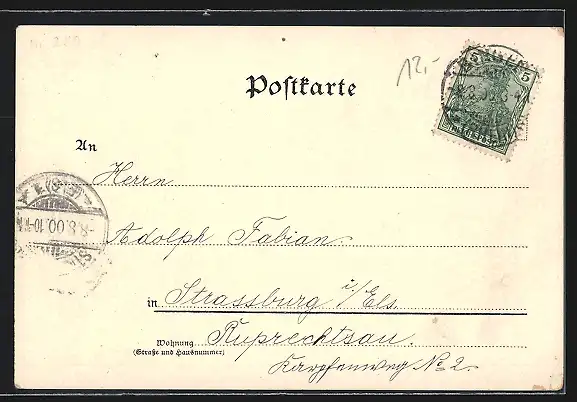 12,-
5
Postkarte
An
Herrn
Adolph Fabian.
-8.8.00.10-11
in Strassburg i/Els.
Ruprechtsau.
Wohnung
(Straße und Hausnummer)
Karpfenweg No 2.